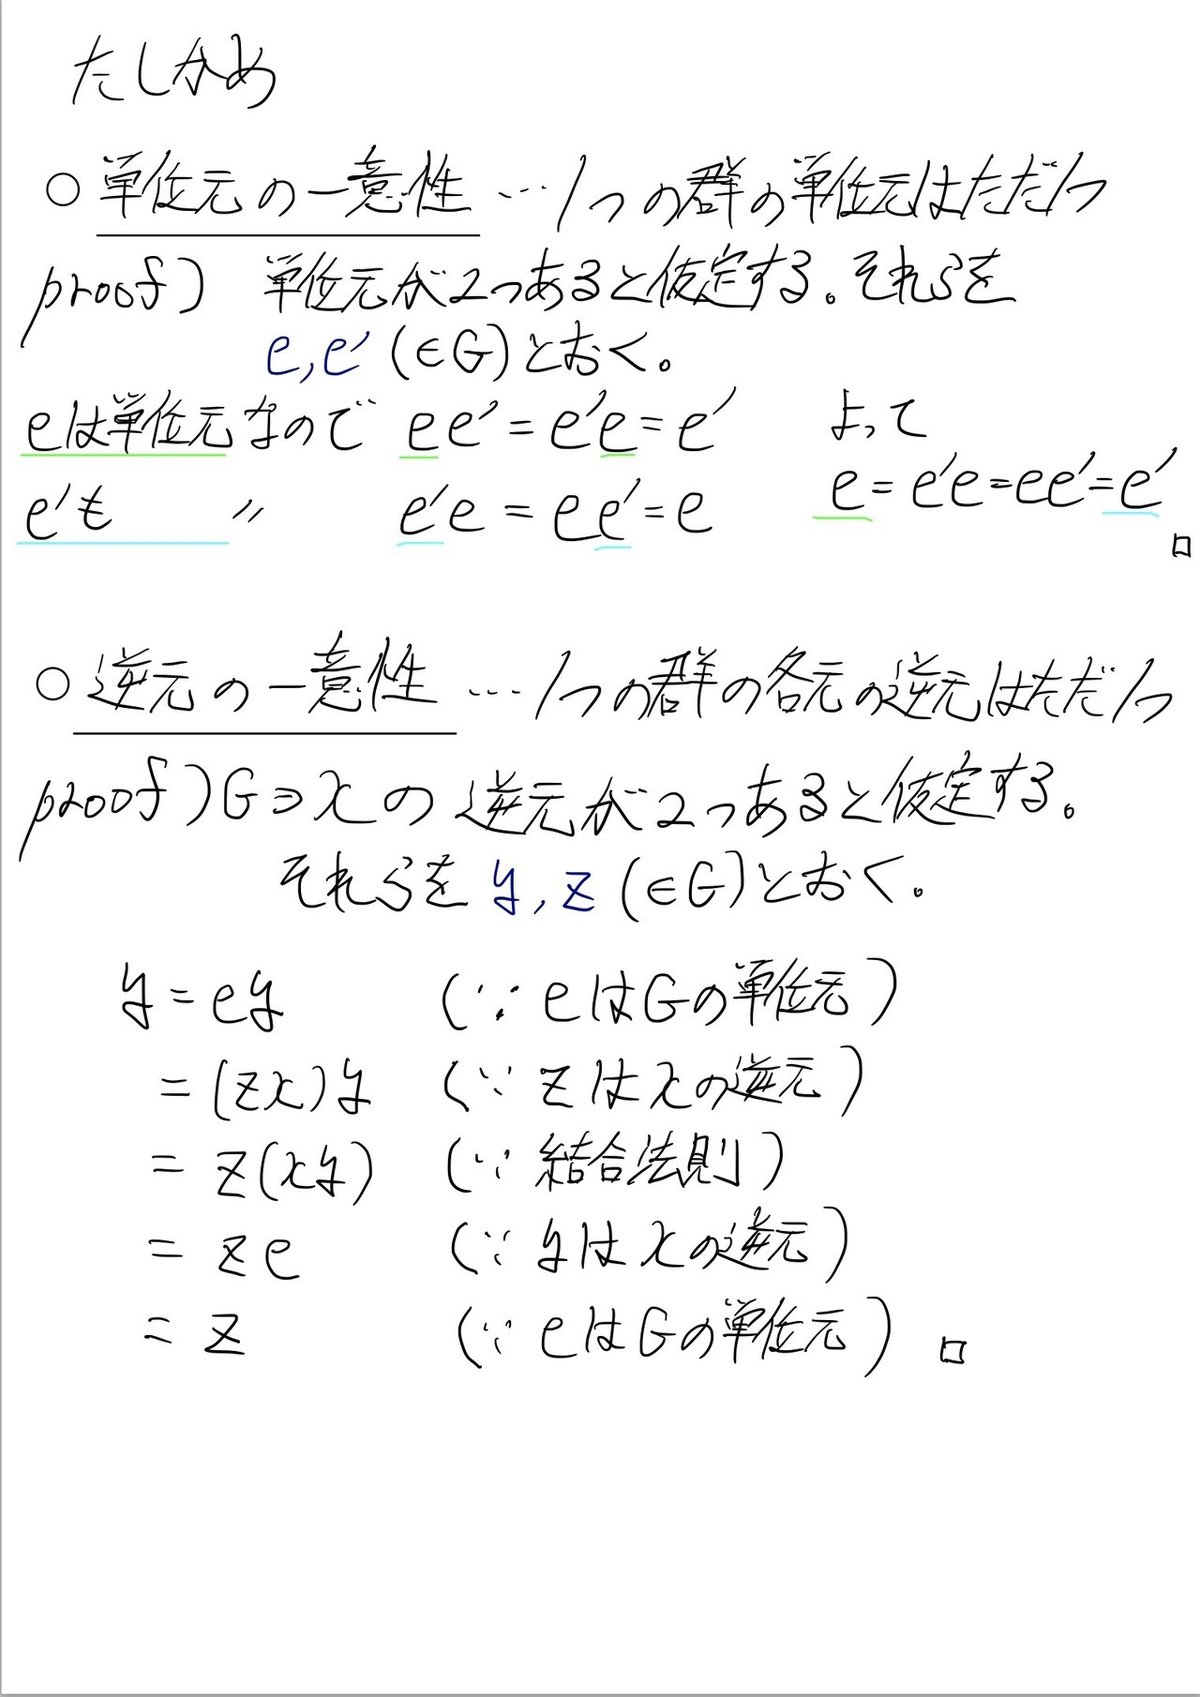 たしかめ
○単位元の一意性 … 1つの群の単位元はただ1つ
proof) 単位元が2つあると仮定する。それらを
e, e' (∈G)とおく。
eは単位元なので ee' = e'e = e' よって
e'も 〃 e'e = ee' = e e = e'e = ee' = e'
□
○逆元の一意性 … 1つの群の各元の逆元はただ1つ
proof) G∋xの逆元が2つあると仮定する。
それらを y, z (∈G)とおく。
y = ey (∵ eはGの単位元)
= (zx)y (∵ zはxの逆元)
= z(xy) (∵ 結合法則)
= ze (∵ yはxの逆元)
= z (∵ eはGの単位元) □